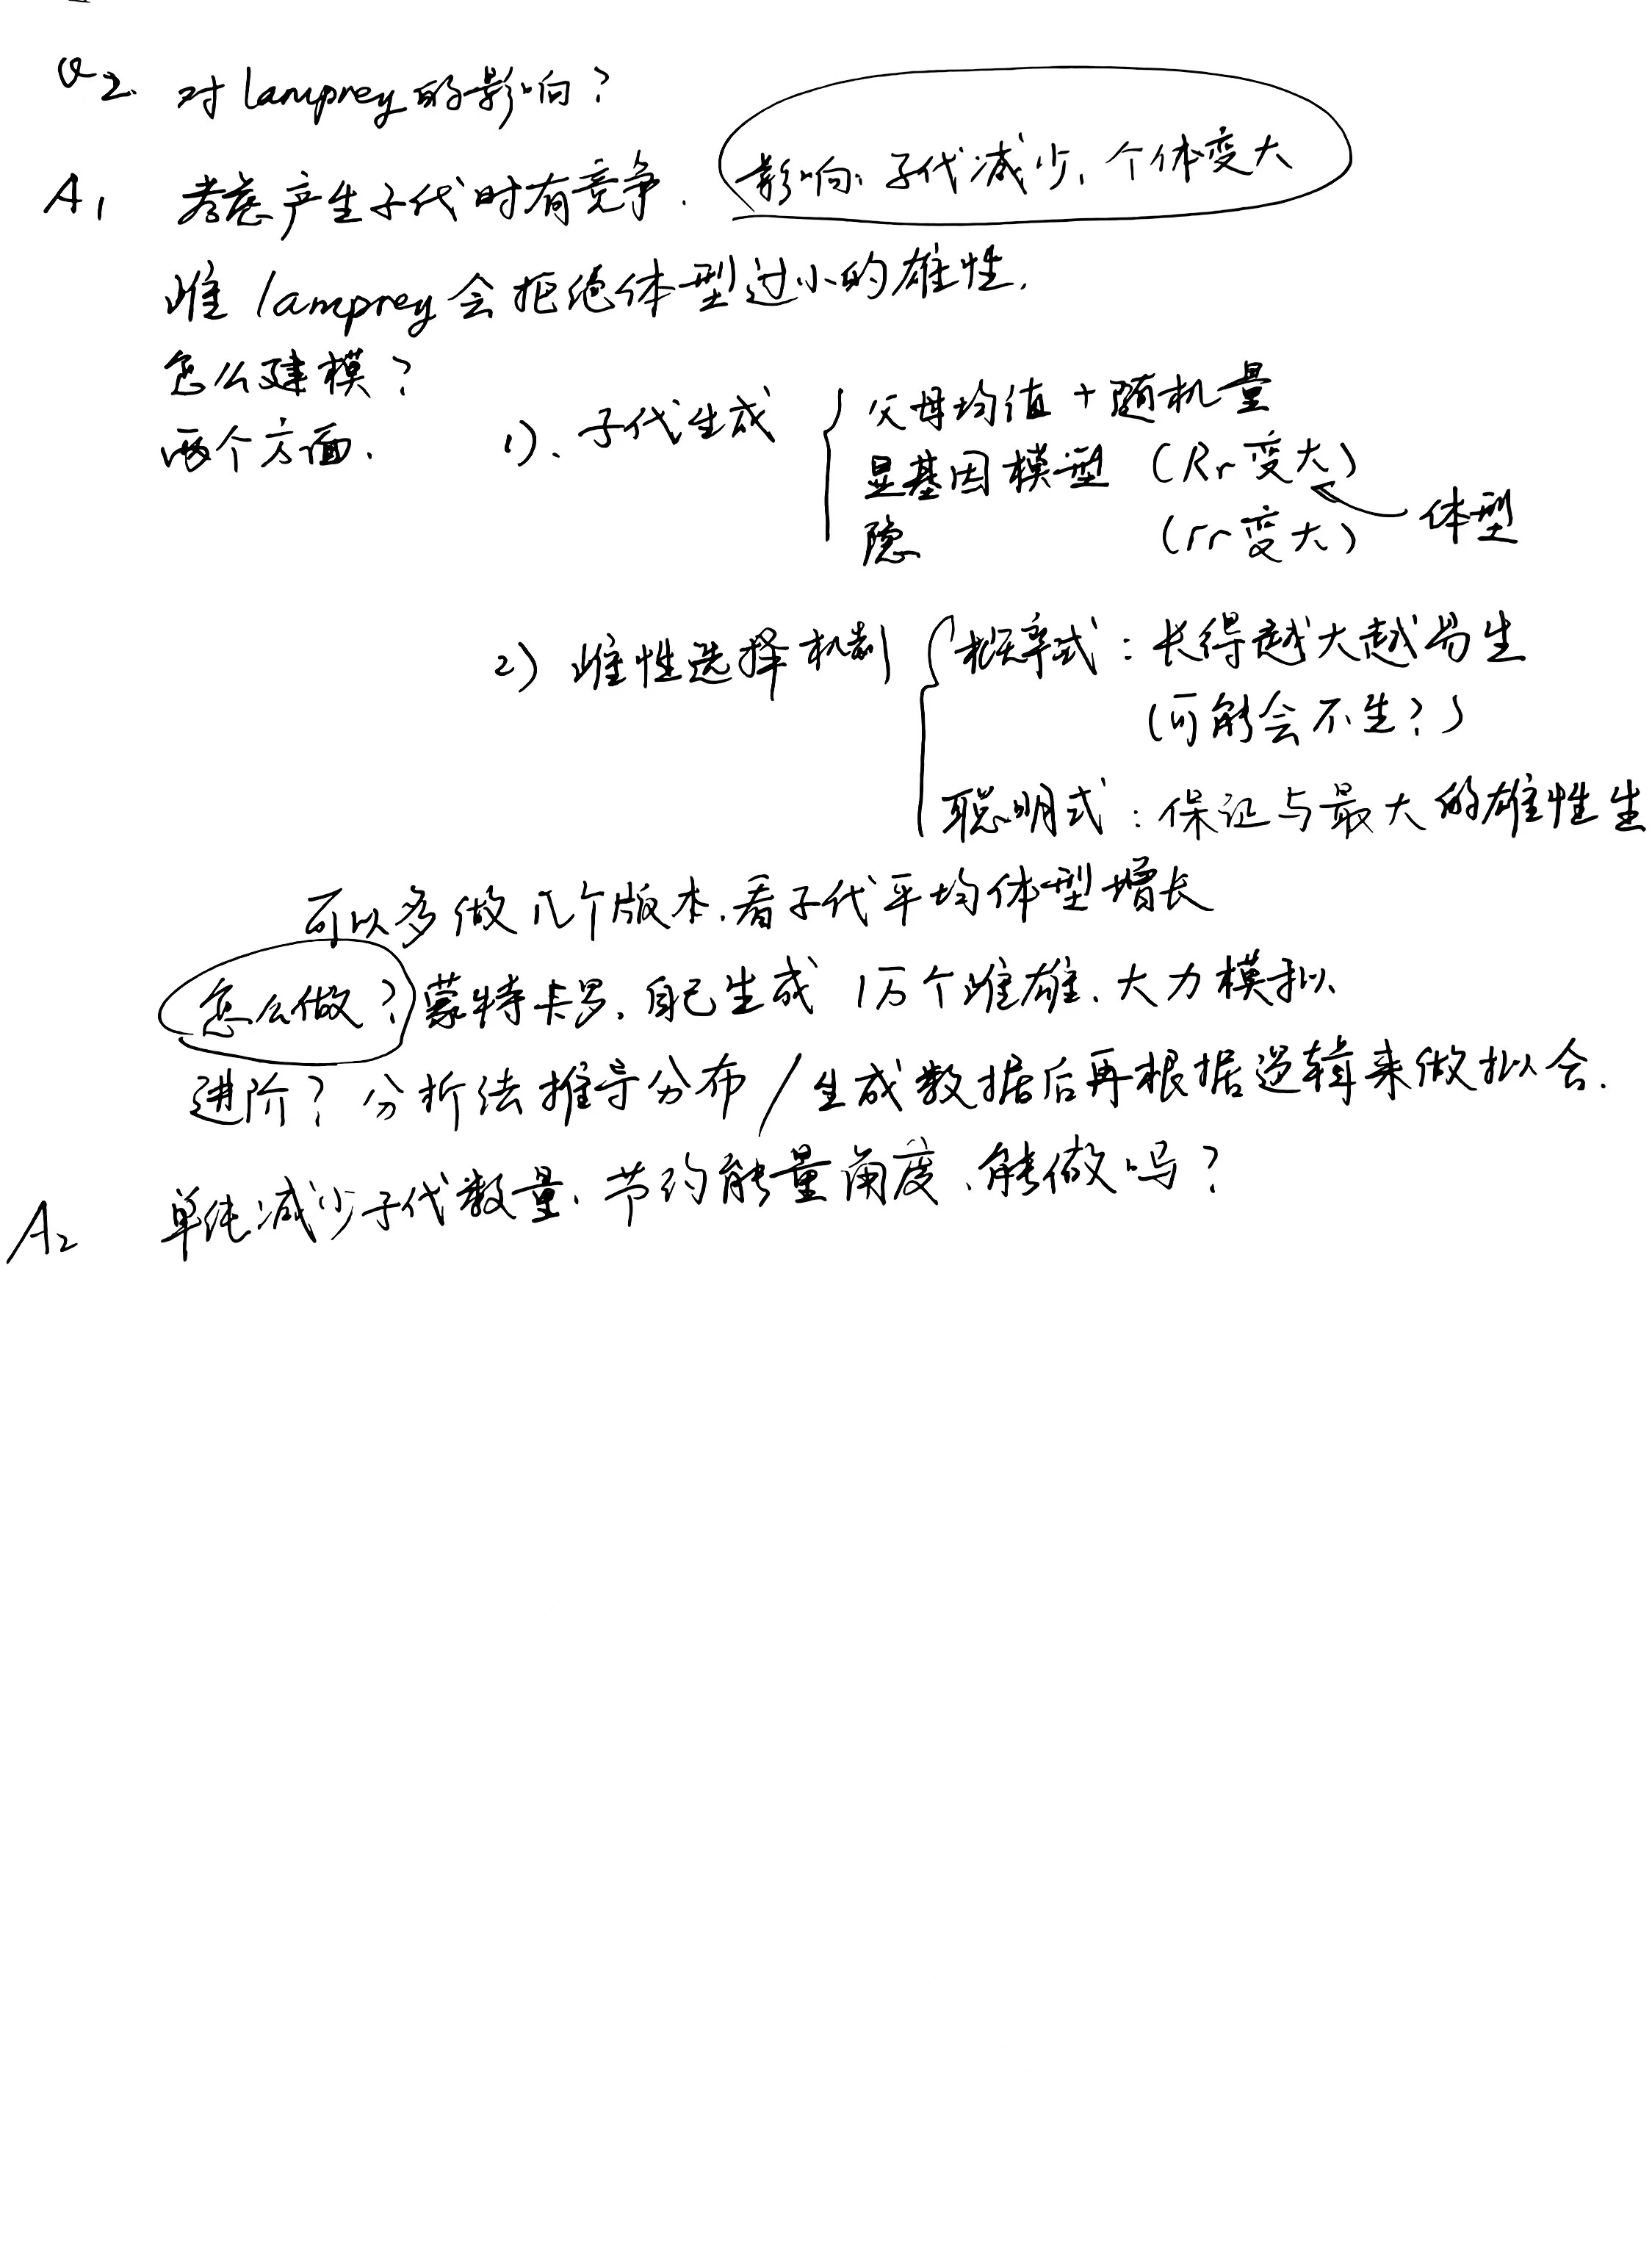 Q2. 对lamprey的影响？
A1 考虑产生子代时有竞争. 影响: 子代减少, 个体变大
雌lamprey会拒绝体型过小的雄性.
怎么建模？
两个方面. 1). 子代生成 父母均值+随机量
显基因模型 (Rr变大)
隐 (rr变大) 体型
2) 雌性选择机制 概率式: 长得越大越易生
(可能会不生?)
聪明式: 保证与最大的雄性生
可以多做几个版本.看子代平均体型增长
怎么做? 蒙特卡罗, 自己生成 1万个雌雄. 大力模拟
进阶? 分析法推导分布/生成数据后再根据逻辑来做拟合.
A2 单纯减少子代数量. 节约能量角度, 能做吗?